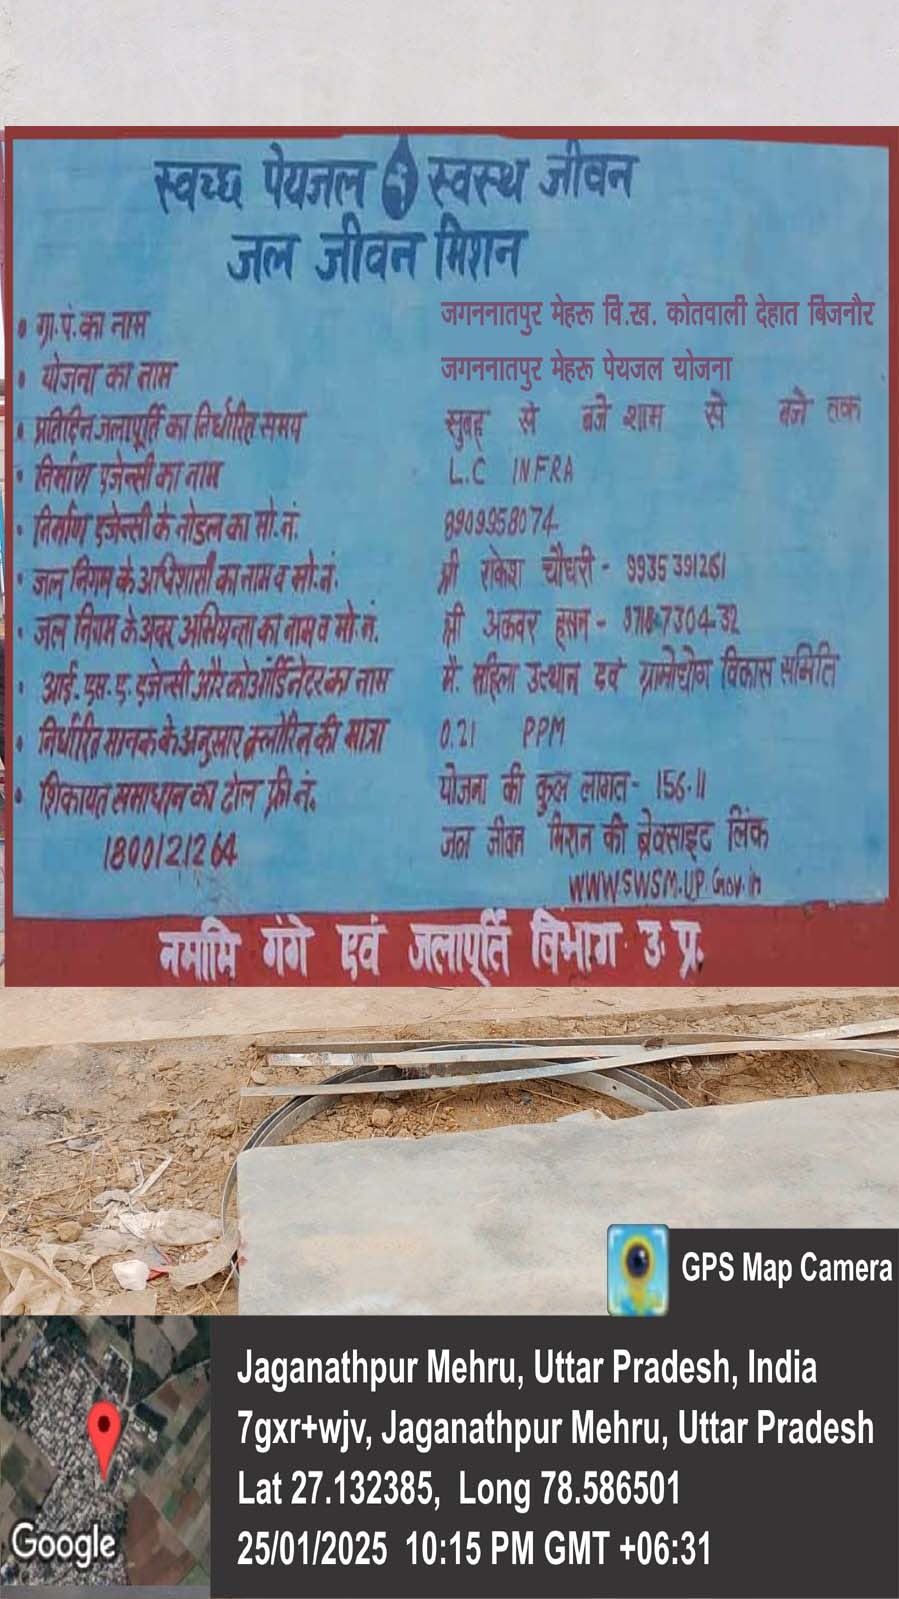 स्वच्छ पेयजल स्वस्थ जीवन
जल जीवन मिशन
• ग्रा.पं.का नाम जगननातपुर मेहरू वि.ख. कोतवाली देहात बिजनौर
• योजना का नाम जगननातपुर मेहरू पेयजल योजना
• प्रतिदिन जलापूर्ति का निर्धारित समय सुबह से बजे शाम से बजे तक
• निर्माण एजेन्सी का नाम L.C INFRA
• निर्माण एजेन्सी के नोडल का मो.नं. 8909958074
• जल निगम के अधिशासी का नाम व मो.नं. श्री राकेश चौधरी - 9935391261
• जल निगम के अवर अभियन्ता का नाम व मो.नं. श्री अकवर हसन -
• आई.एस.ए.एजेन्सी और कोऑर्डिनेटर का नाम मै. महिला उत्थान एवं ग्रामोद्योग विकास समिति
• निर्धारित मानक के अनुसार क्लोरिन की मात्रा 0.21 PPM
• शिकायत समाधान का टोल फ्री नं. योजना की कुल लागत - 156.11
1800121264 जल जीवन मिशन की बेवसाइट लिंक
www.SWSM.UP.Gov.in
नमामि गंगे एवं जलापूर्ति विभाग उ.प्र.
GPS Map Camera
Jaganathpur Mehru, Uttar Pradesh, India
7gxr+wjv, Jaganathpur Mehru, Uttar Pradesh
Lat 27.132385, Long 78.586501
25/01/2025 10:15 PM GMT +06:31
Google